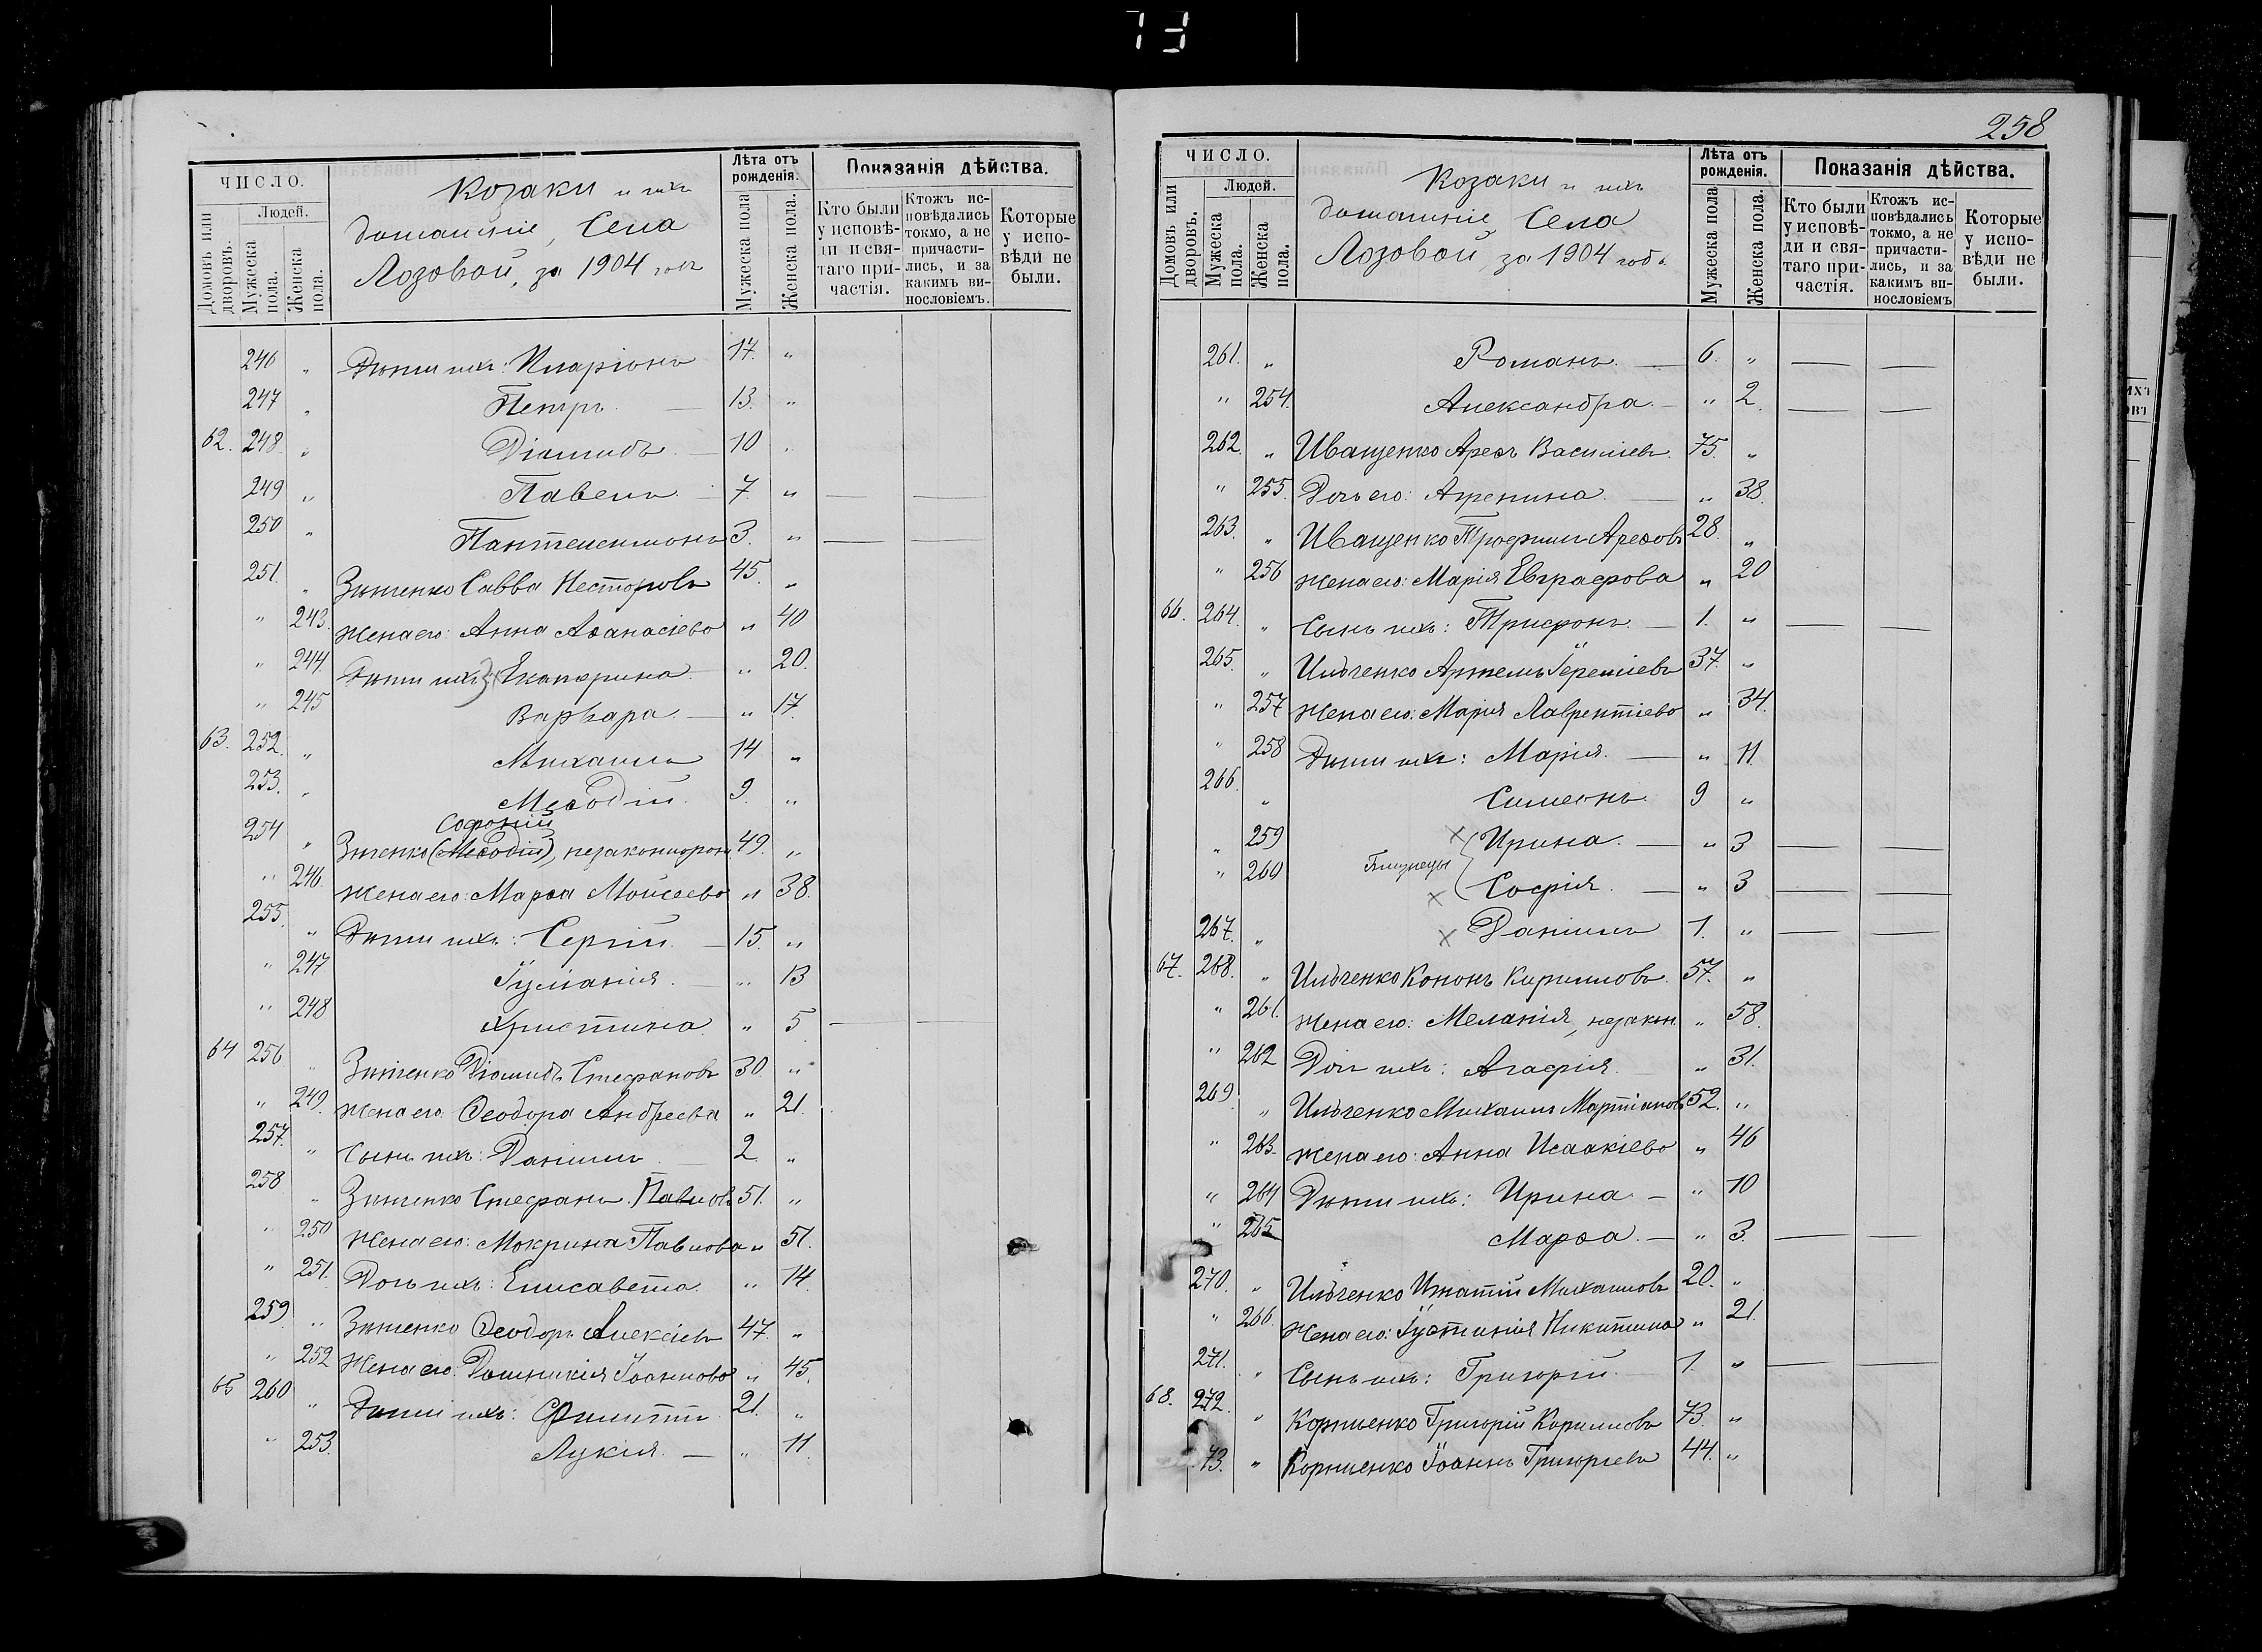 ЧИСЛО.
Домовъ или дворовъ.
Людей.
Мужеска пола.
Женска пола.
Козаки и ихъ
домашніе, Села
Лозовой, за 1904 годъ
Лѣта отъ рожденія.
Мужеска пола
Женска пола.
Показанія дѣйства.
Кто были у исповѣди и святаго причастія.
Ктожъ исповѣдались токмо, а не причастились, и за какимъ винословіемъ.
Которые у исповѣди не были.
246 „ Дѣти ихъ: Иларіонъ 17. „
247 „ Петръ. — 13. „
62. 248. „ Діомидъ. — 10 „
249 „ Павелъ. — 7. „ — —
250 „ Пантелеимонъ 3. „ — —
251. „ Зинченко Савва Несторовъ 45. „
„ 243. Жена его: Анна Аѳанасіева „ 40
„ 244 Дѣти ихъ: Екатерина — „ 20.
„ 245 Варвара. — „ 17.
63. 252. „ Михаилъ 14 „
253. „ Меѳодій. 9. „
Софоній
254 „ Зинченко (Меѳодій), незаконнорож. 49. „
„ 246. Жена его: Марѳа Моисеева „ 38.
255. „ Дѣти ихъ: Сергій. — 15. „
„ 247 Іуліанія. — „ 13
„ 248 Христина. „ 5 — —
64 256 „ Зинченко Діомидъ Стефановъ 30 „
„ 249. Жена его: Ѳеодора Андреева „ 21.
257. „ Сынъ ихъ: Даніилъ — 2. „
258 „ Зинченко Стефанъ Павловъ 51. „
„ 250 Жена его: Мокрина Павлова „ 51.
„ 251. Дочь ихъ: Елисавета. „ 14.
259 „ Зинченко Ѳеодоръ Алексіевъ 47. „
„ 252 Жена его: Домникія Іоаннова „ 45.
65 260 „ Дѣти ихъ: Филиппъ 21. „
„ 253. Лукія. — „ 11.
258
ЧИСЛО.
Домовъ или дворовъ.
Людей.
Мужеска пола.
Женска пола.
Козаки и ихъ
домашніе, Села
Лозовой, за 1904 годъ.
Лѣта отъ рожденія.
Мужеска пола
Женска пола.
Показанія дѣйства.
Кто были у исповѣди и святаго причастія.
Ктожъ исповѣдались токмо, а не причастились, и за какимъ винословіемъ
Которые у исповѣди не были.
261. „ Романъ. — 6. „ — —
„ 254. Александра. — „ 2. — —
262. „ Иващенко Ареѳъ Василіевъ. 75. „
„ 255. Дочь его: Агрепина. — „ 38.
263. „ Иващенко Трофимъ Ареѳовъ 28. „
„ 256 Жена его: Марія Евграфова „ 20
66. 264. „ Сынъ ихъ: Трифонъ. — 1. „ — —
265. „ Ильченко Артемъ Іереміевъ 37. „
„ 257 Жена его: Марія Лаврентіева „ 34.
„ 258 Дѣти ихъ: Марія. — „ 11.
266. „ Симеонъ. 9 „
„ 259 Близнецы Ирина. — „ 3 — —
„ 260 Софія. — „ 3 — —
267. „ Даніилъ 1. „ — —
67. 268. „ Ильченко Кононъ Кирилловъ. 57. „
„ 261. Жена его: Меланія, незакон. „ 58.
„ 262 Дочь ихъ: Агафія. — „ 31.
269. „ Ильченко Михаилъ Мартіановъ 52. „
„ 263. Жена его: Анна Исаакіева „ 46
„ 264 Дѣти ихъ: Ирина. — „ 10
„ 265 Марѳа. — „ 3. — —
270. „ Ильченко Игнатій Михаиловъ 20. „
„ 266. Жена его: Іустинія Никитина „ 21.
271. „ Сынъ ихъ: Григорій. — 1. „ — —
68. 272. „ Корніенко Григорій Кирилловъ 73. „
73. „ Корніенко Іоаннъ Григорьевъ 44. „